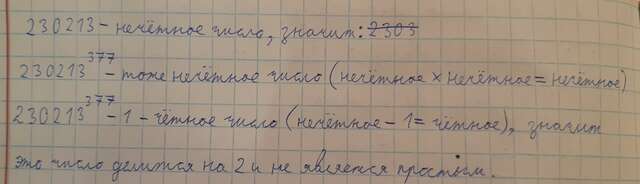 230213 - нечётное число, значит: 2303
230213³⁷⁷ - тоже нечётное число (нечётное × нечётное = нечётное)
230213³⁷⁷ - 1 - чётное число (нечётное - 1 = чётное), значит
это число делится на 2 и не является простым.